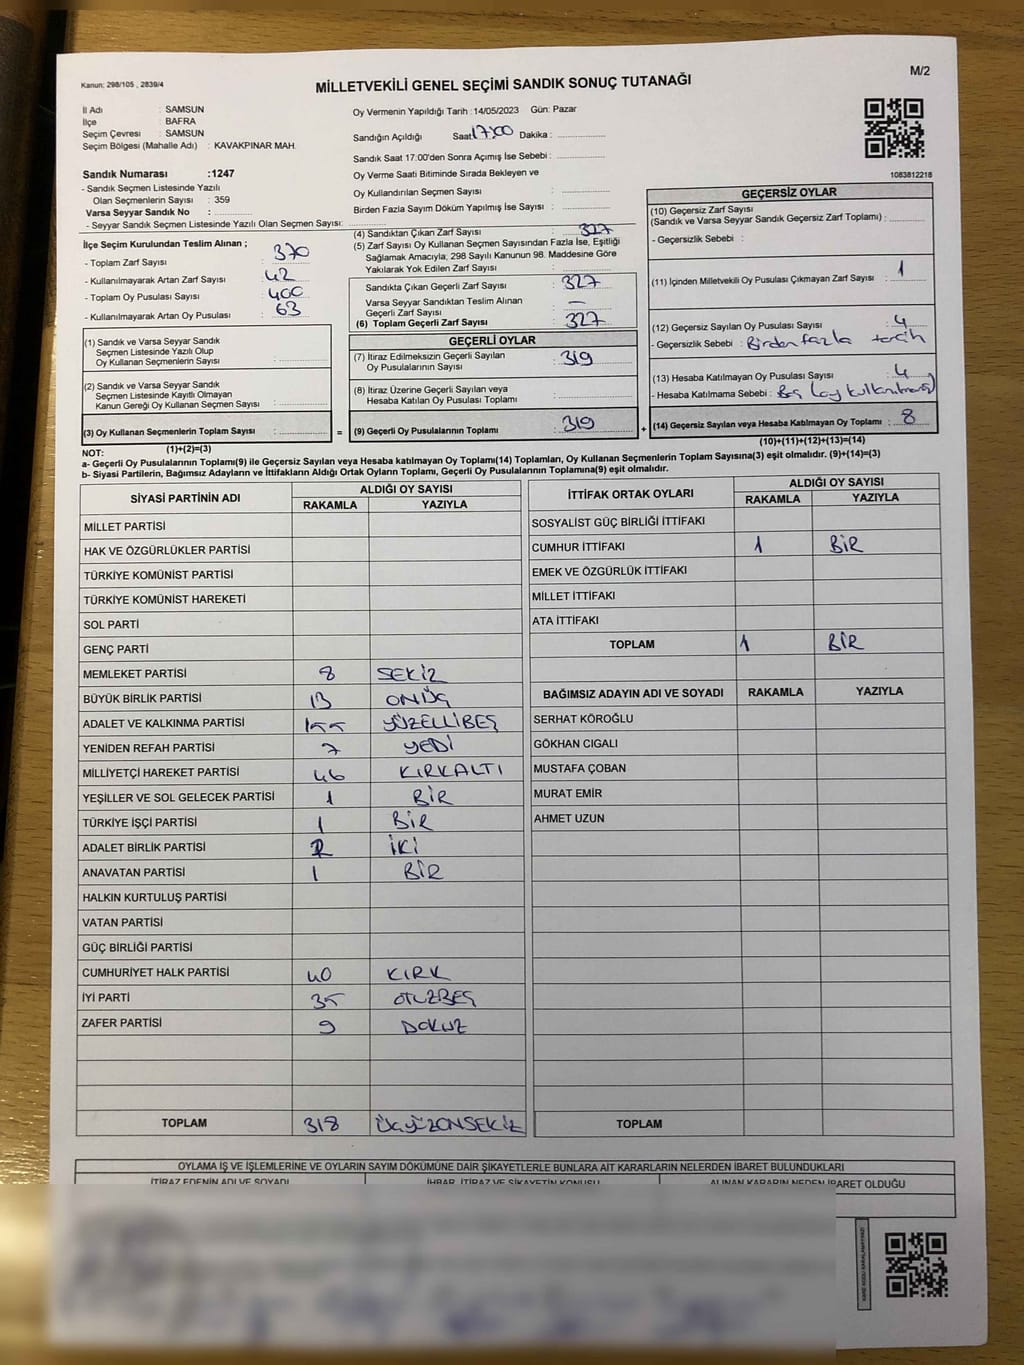 Kanun: 298/105 , 2839/4
MİLLETVEKİLİ GENEL SEÇİMİ SANDIK SONUÇ TUTANAĞI
M/2
İl Adı : SAMSUN
İlçe : BAFRA
Seçim Çevresi : SAMSUN
Seçim Bölgesi (Mahalle Adı) : KAVAKPINAR MAH.
Sandık Numarası :1247
- Sandık Seçmen Listesinde Yazılı
Olan Seçmenlerin Sayısı : 359
Varsa Seyyar Sandık No :
- Seyyar Sandık Seçmen Listesinde Yazılı Olan Seçmen Sayısı:
İlçe Seçim Kurulundan Teslim Alınan ;
- Toplam Zarf Sayısı 370
- Kullanılmayarak Artan Zarf Sayısı 42
- Toplam Oy Pusulası Sayısı 400
- Kullanılmayarak Artan Oy Pusulası 63
(1) Sandık ve Varsa Seyyar Sandık
Seçmen Listesinde Yazılı Olup
Oy Kullanan Seçmenlerin Sayısı :
(2) Sandık ve Varsa Seyyar Sandık
Seçmen Listesinde Kayıtlı Olmayan
Kanun Gereği Oy Kullanan Seçmen Sayısı :
(3) Oy Kullanan Seçmenlerin Toplam Sayısı :
(1)+(2)=(3)
Oy Vermenin Yapıldığı Tarih : 14/05/2023 Gün: Pazar
Sandığın Açıldığı Saat 17:00 Dakika :
Sandık Saat 17:00'den Sonra Açımış İse Sebebi :
Oy Verme Saati Bitiminde Sırada Bekleyen ve
Oy Kullandırılan Seçmen Sayısı :
Birden Fazla Sayım Döküm Yapılmış İse Sayısı :
(4) Sandıktan Çıkan Zarf Sayısı : 327
(5) Zarf Sayısı Oy Kullanan Seçmen Sayısından Fazla İse, Eşitliği
Sağlamak Amacıyla, 298 Sayılı Kanunun 98. Maddesine Göre
Yakılarak Yok Edilen Zarf Sayısı :
Sandıkta Çıkan Geçerli Zarf Sayısı : 327
Varsa Seyyar Sandıktan Teslim Alınan
Geçerli Zarf Sayısı : —
(6) Toplam Geçerli Zarf Sayısı : 327
GEÇERLİ OYLAR
(7) İtiraz Edilmeksizin Geçerli Sayılan
Oy Pusulasının Sayısı : 319
(8) İtiraz Üzerine Geçerli Sayılan veya
Hesaba Katılan Oy Pusulası Toplamı :
= (9) Geçerli Oy Pusulalarının Toplamı : 319 +
1083812218
GEÇERSİZ OYLAR
(10) Geçersiz Zarf Sayısı
(Sandık ve Varsa Seyyar Sandık Geçersiz Zarf Toplamı) :
- Geçersizlik Sebebi :
(11) İçinden Milletvekili Oy Pusulası Çıkmayan Zarf Sayısı : 1
(12) Geçersiz Sayılan Oy Pusulası Sayısı : 4
- Geçersizlik Sebebi : Birden fazla tercih
(13) Hesaba Katılmayan Oy Pusulası Sayısı : 4
- Hesaba Katılmama Sebebi : Boş
(14) Geçersiz Sayılan veya Hesaba Katılmayan Oy Toplamı : 8
(10)+(11)+(12)+(13)=(14)
NOT:
a- Geçerli Oy Pusulalarının Toplamı(9) ile Geçersiz Sayılan veya Hesaba katılmayan Oy Toplamı(14) Toplamları, Oy Kullanan Seçmenlerin Toplam Sayısına(3) eşit olmalıdır. (9)+(14)=(3)
b- Siyasi Partilerin, Bağımsız Adayların ve İttifakların Aldığı Ortak Oyların Toplamı, Geçerli Oy Pusulalarının Toplamına(9) eşit olmalıdır.
SİYASİ PARTİNİN ADI
ALDIĞI OY SAYISI
RAKAMLA YAZIYLA
MİLLET PARTİSİ
HAK VE ÖZGÜRLÜKLER PARTİSİ
TÜRKİYE KOMÜNİST PARTİSİ
TÜRKİYE KOMÜNİST HAREKETİ
SOL PARTİ
GENÇ PARTİ
MEMLEKET PARTİSİ 8 SEKİZ
BÜYÜK BİRLİK PARTİSİ 13 ONÜÇ
ADALET VE KALKINMA PARTİSİ 155 YÜZELLİBEŞ
YENİDEN REFAH PARTİSİ 7 YEDİ
MİLLİYETÇİ HAREKET PARTİSİ 46 KIRKALTI
YEŞİLLER VE SOL GELECEK PARTİSİ 1 BİR
TÜRKİYE İŞÇİ PARTİSİ 1 BİR
ADALET BİRLİK PARTİSİ 2 İKİ
ANAVATAN PARTİSİ 1 BİR
HALKIN KURTULUŞ PARTİSİ
VATAN PARTİSİ
GÜÇ BİRLİĞİ PARTİSİ
CUMHURİYET HALK PARTİSİ 40 KIRK
İYİ PARTİ 35 OTUZBEŞ
ZAFER PARTİSİ 9 DOKUZ
TOPLAM 318 ÜÇYÜZONSEKİZ
İTTİFAK ORTAK OYLARI
ALDIĞI OY SAYISI
RAKAMLA YAZIYLA
SOSYALİST GÜÇ BİRLİĞİ İTTİFAKI
CUMHUR İTTİFAKI 1 BİR
EMEK VE ÖZGÜRLÜK İTTİFAKI
MİLLET İTTİFAKI
ATA İTTİFAKI
TOPLAM 1 BİR
BAĞIMSIZ ADAYIN ADI VE SOYADI RAKAMLA YAZIYLA
SERHAT KÖROĞLU
GÖKHAN CIGALI
MUSTAFA ÇOBAN
MURAT EMİR
AHMET UZUN
TOPLAM
OYLAMA İŞ VE İŞLEMLERİNE VE OYLARIN SAYIM DÖKÜMÜNE DAİR ŞİKAYETLERLE BUNLARA AİT KARARLARIN NELERDEN İBARET BULUNDUKLARI
İTİRAZ EDENİN ADI VE SOYADI İHBAR, İTİRAZ VE ŞİKAYETİN KONUSU ALINAN KARARIN NEDEN İBARET OLDUĞU